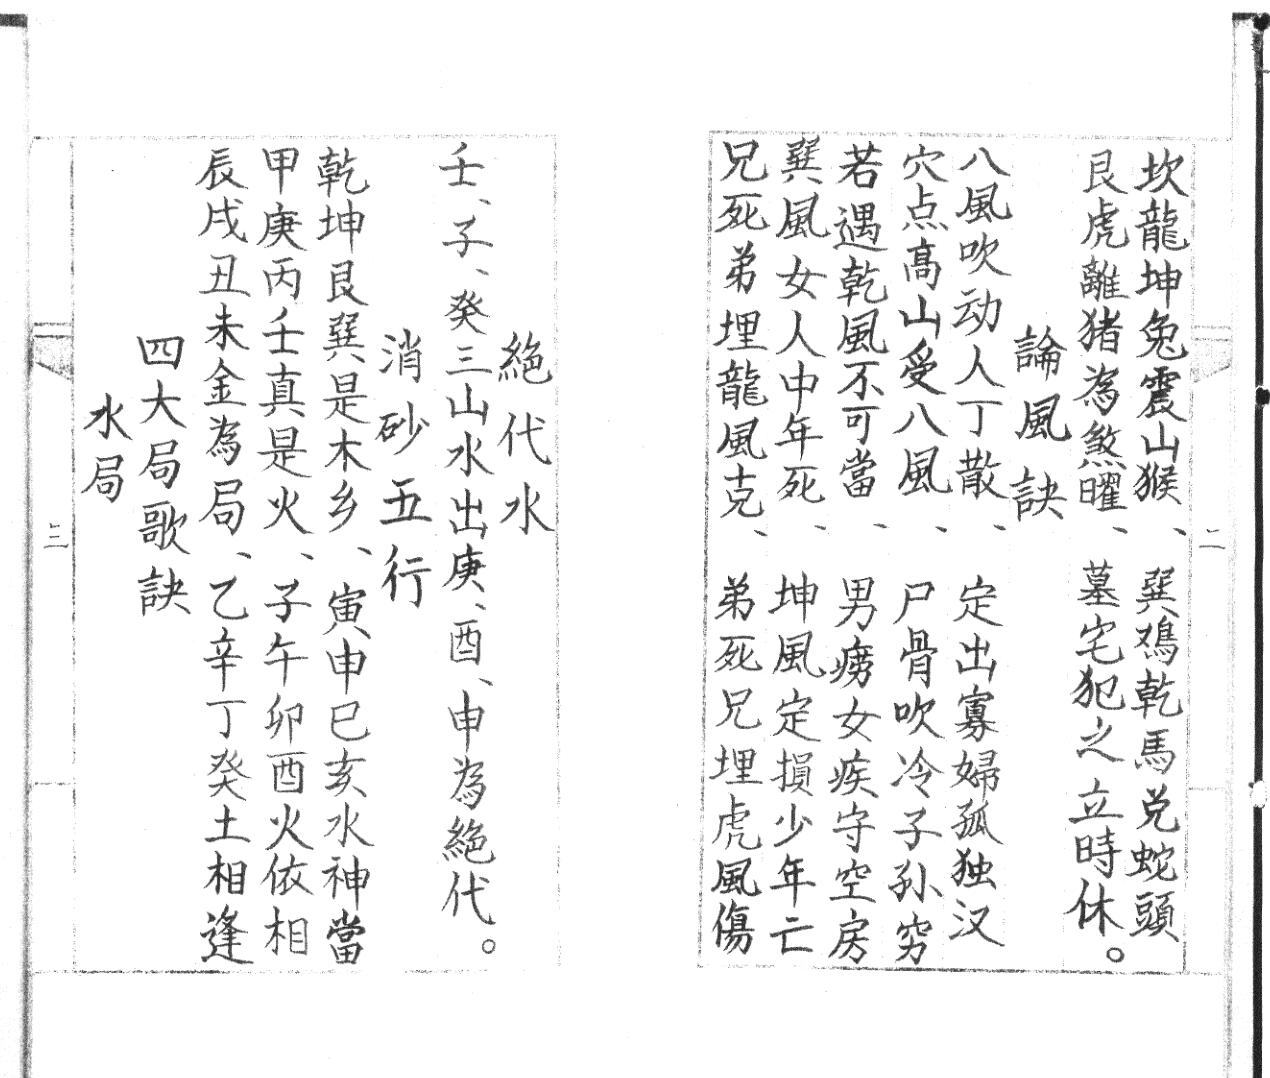 坎龍坤兔震山猴、巽鳮乾馬兑蛇頭
艮虎離猪為煞曜、墓宅犯之立時休。
論風訣
八風吹动人丁散、定出寡婦孤独汉
穴点高山受八風、尸骨吹冷子孙穷
若遇乾風不可當、男癆女疾守空房
巽風女人中年死、坤風定損少年亡
兄死弟埋龍風克、弟死兄埋虎風傷
二
絕代水
壬、子、癸三山水出庚、酉、申為絕代。
消砂五行
乾坤艮巽是木乡、寅申巳亥水神當
甲庚丙壬真是火、子午卯酉火依相
辰戌丑未金為局、乙辛丁癸土相逢
四大局歌訣
水局
三